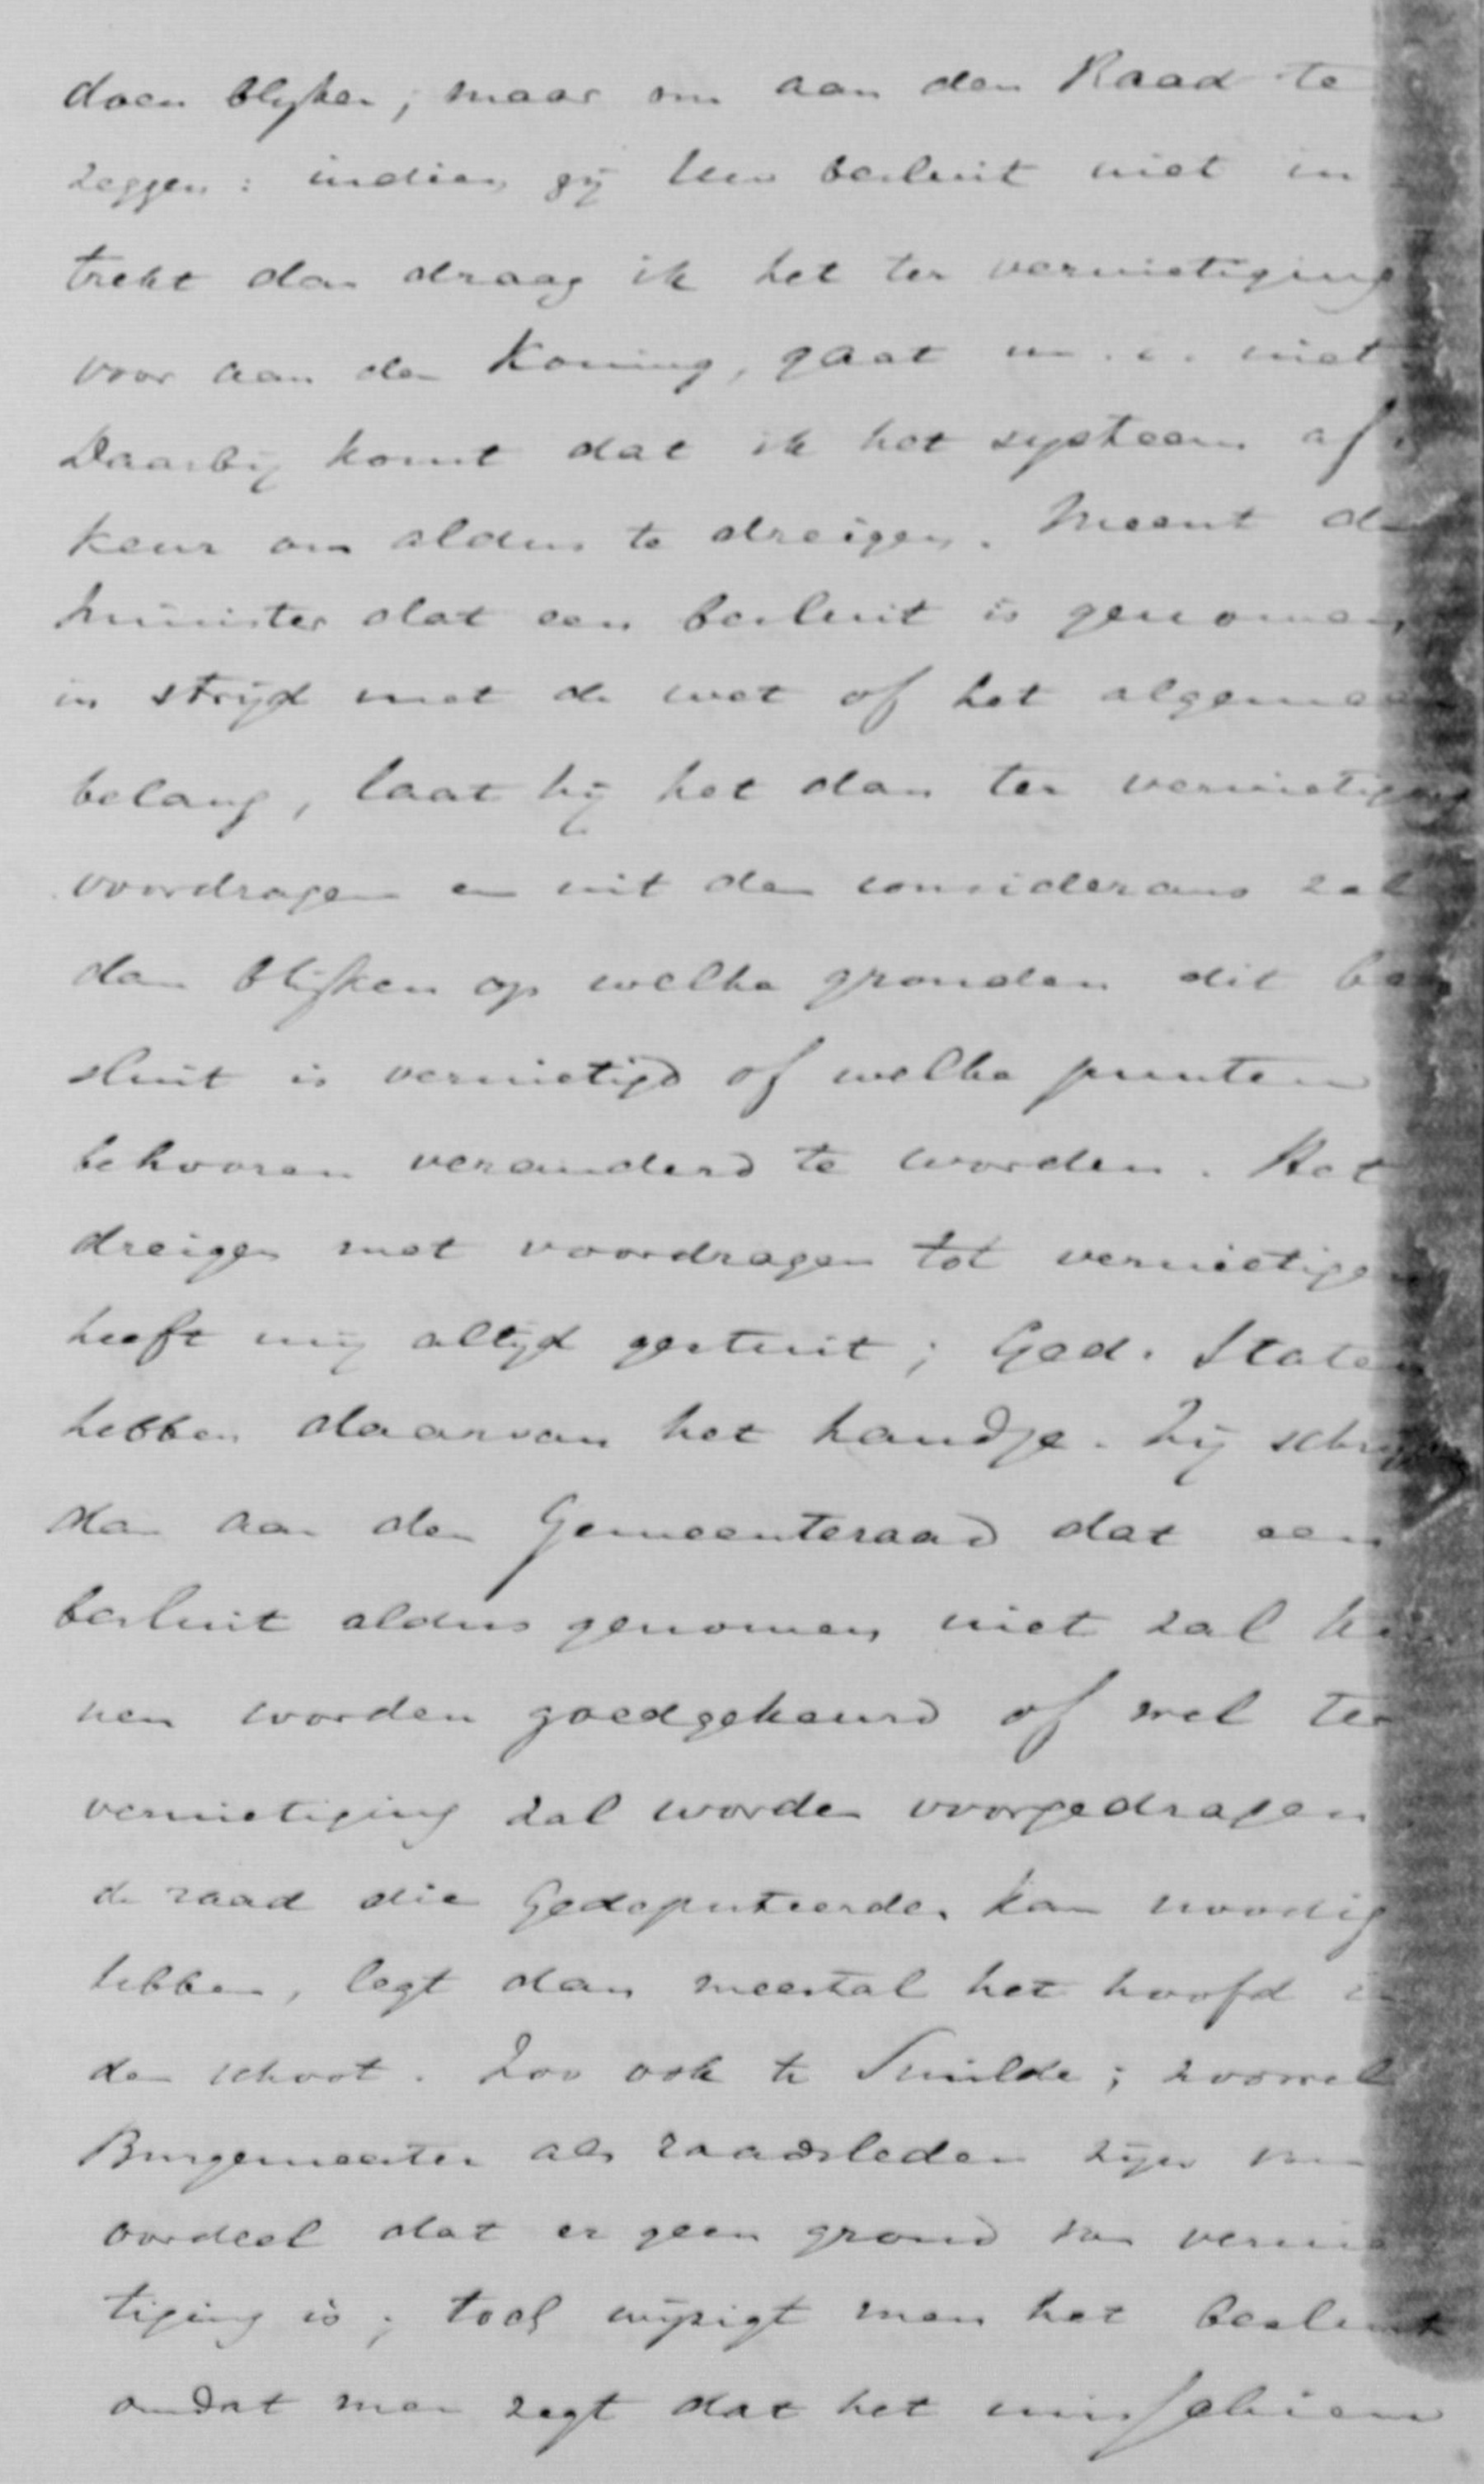 doen blijken, maar om aan den Raad te
zeggen: indien gij Uw besluit niet in
trekt dan draag ik het ter vernietiging
voor aan den Koning, gaat m. i. niet
Daarbij komt dat ik het systeem af
keur om aldus te dreigen. Meent de
minister dat een besluit is genomen
in strijd met de wet of het algemeen
belang, laat hij het dan ter vernietiging
voordragen en uit den considerans zal
dan blijken op welke gronden dit be
sluit is vernietigd of welke punten
behooren veranderd te worden. Het
dreigen met voordragen tot vernietigen
heeft mij altijd gestuit; Ged. Staten
hebben daarvan het handje. Zij schrijven
dan aan den Gemeenteraad dat een
besluit aldus genomen niet zal kun
nen worden goedgekeurd of wel ter
vernietiging zal worden voorgedragen
de raad die Gedeputeerden kan noodig
hebben, legt dan meestal het hoofd in
den schoot. Zoo ook te Smilde; zoowel
Burgemeester als raadsleden zijn van
oordeel dat er geen grond van vernie
tiging is; toch wijzigt men het besluit
omdat men zegt dat het misschien